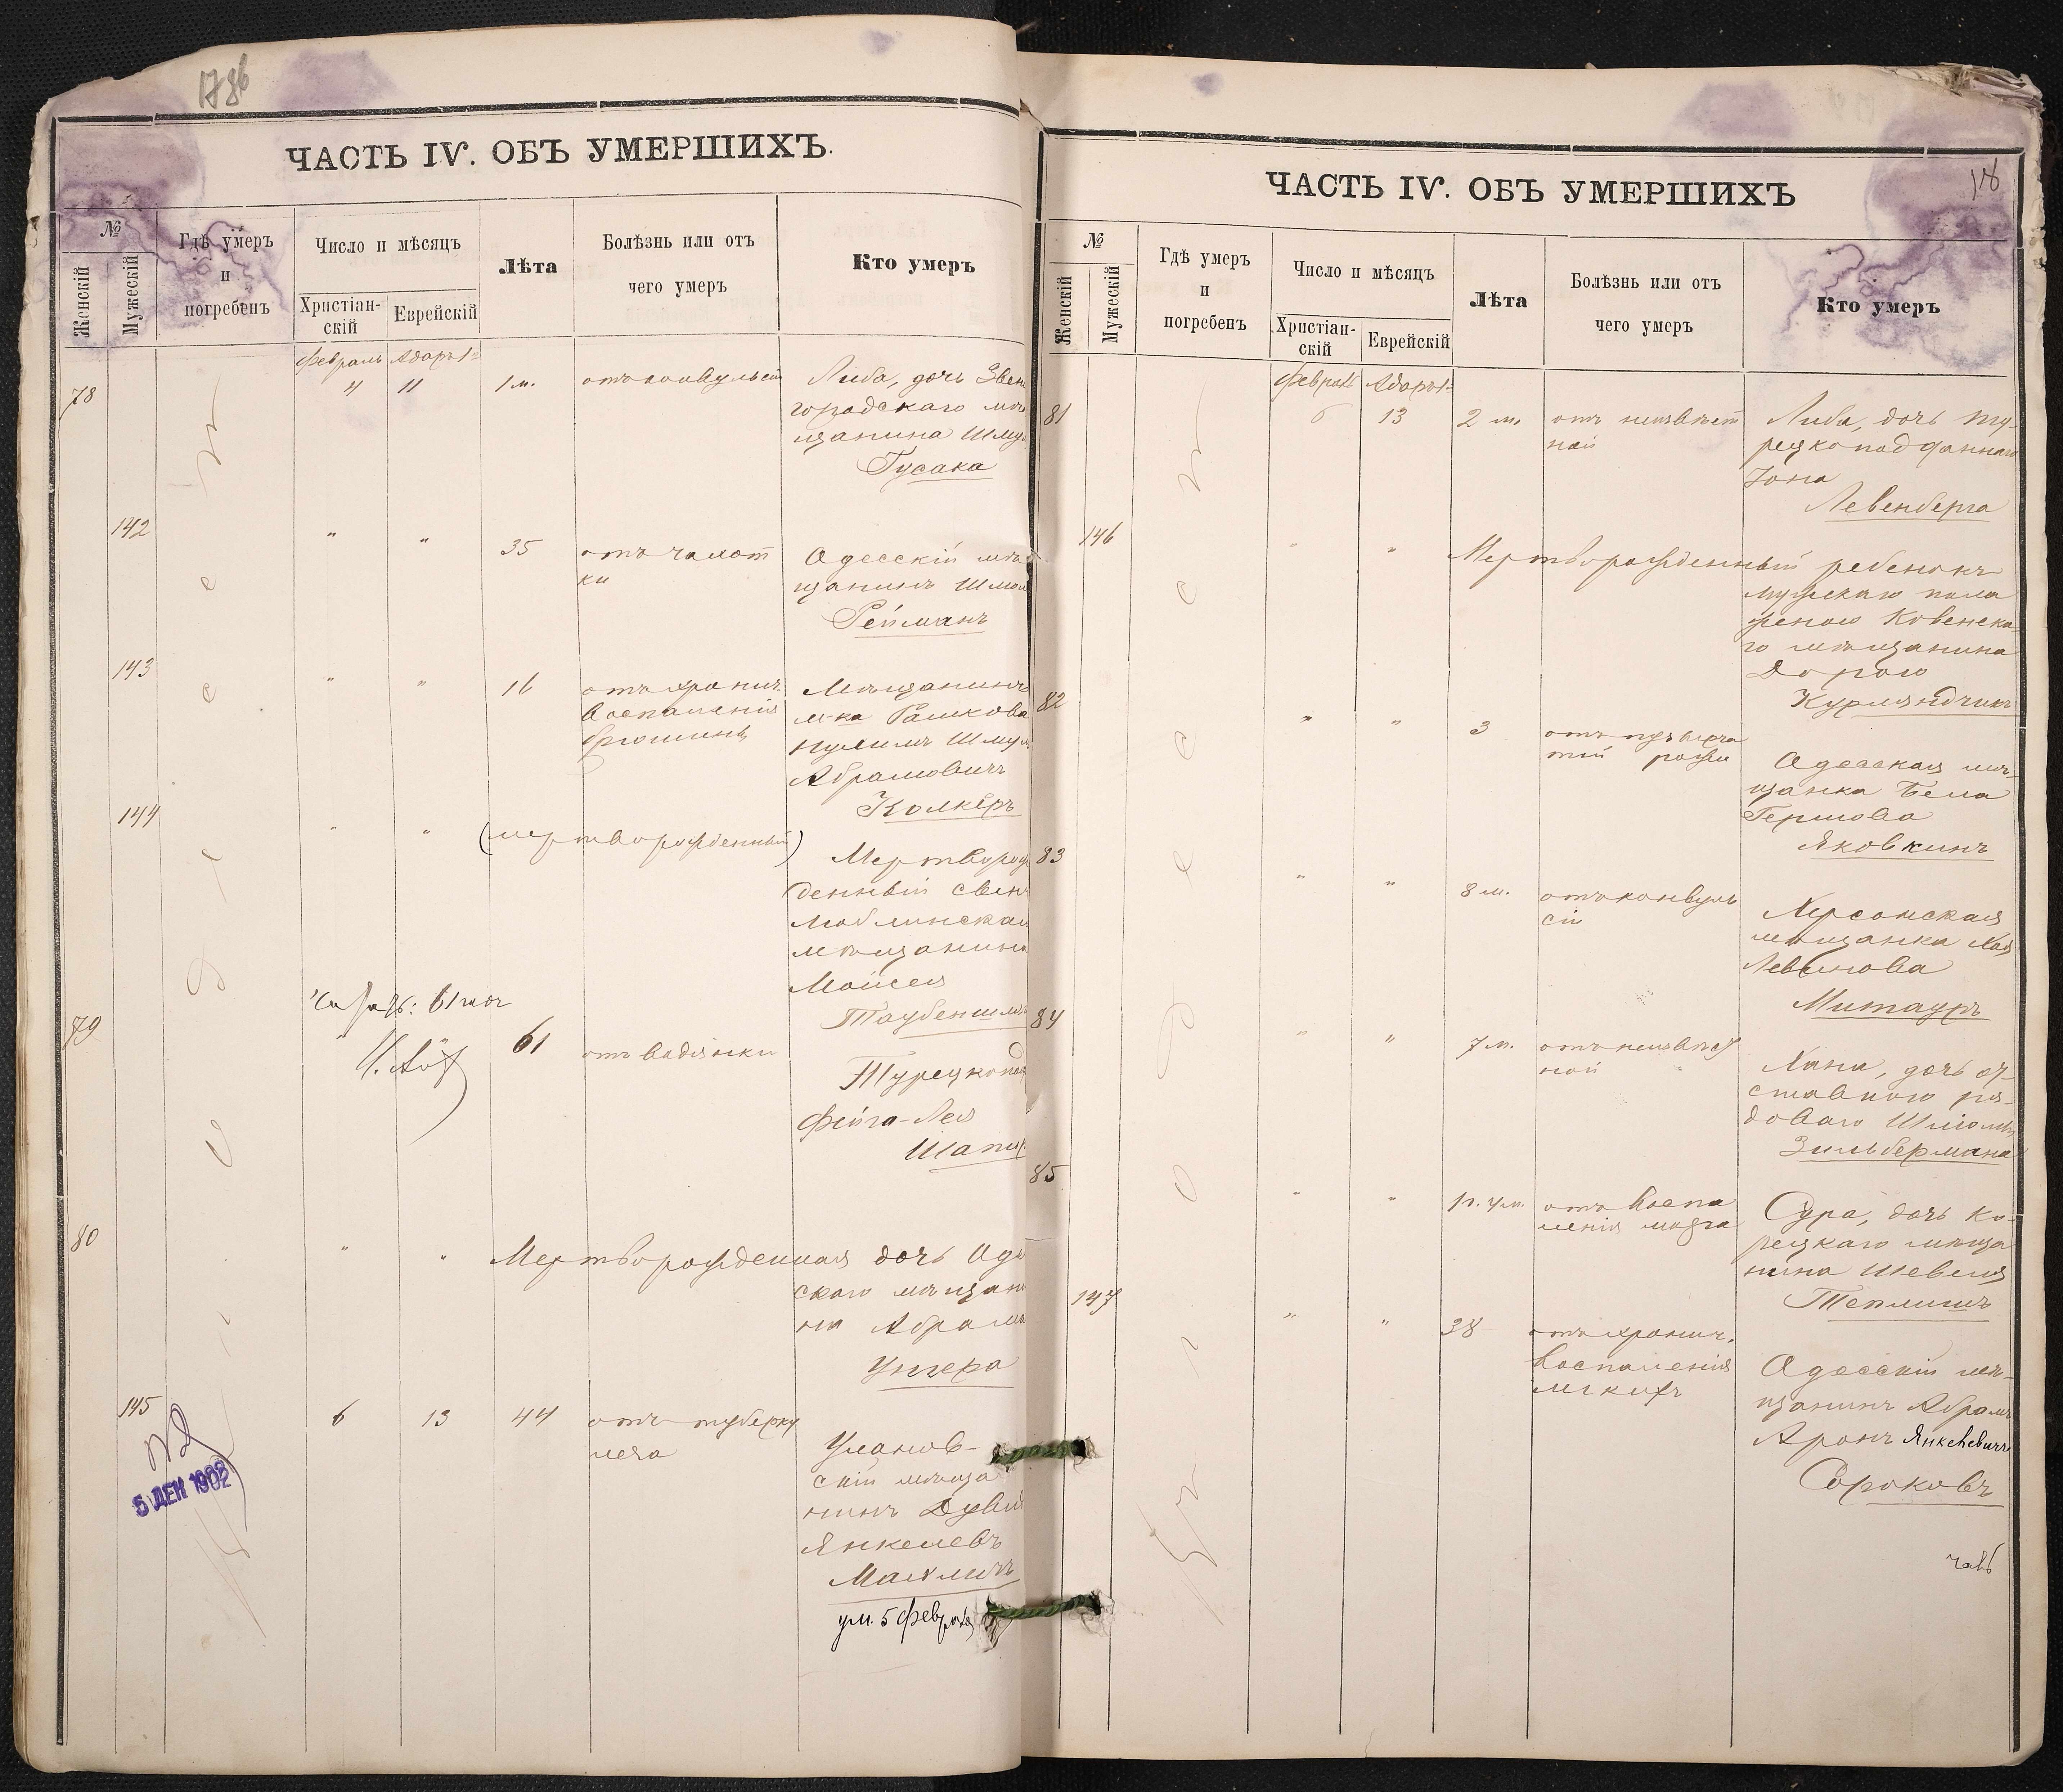 ЧАСТЬ IV. ОБЪ УМЕРШИХЪ.
№
Женскій
Мужескій
Гдѣ умеръ
и
погребенъ
Число и мѣсяцъ
Христіан-
скій
Еврейскій
Лѣта
Болѣзнь или отъ
чего умеръ
Кто умеръ
Февраль Адаръ 1й
78
4 11 1 м. отъ конвульсій
Либа, дочь Звени
городскаго мѣ
щанина Шмуля
Гусака
142
" " 35 отъ чахот
ки
Одесскій мѣ
щанинъ
Рейманъ
143
" " 16 отъ хронич.
воспаленія
брюшины
Мѣщанинъ
м-ка Рашкова
Абрамовичъ
Колкеръ
144
" " (мертворожденный)
Мертворож
денный сынъ
Люблинскаго
мѣщанина
Моисея
79
" 61 отъ водянки
Турецкопод
Фейга-Лея
80
" " Мертворожденная дочь Одес
скаго мѣщани
на Абрама
Унгера
145
6 13 44 отъ туберку
леза
Улановъ-
скій мѣща
нинъ
Янкелевъ
ум. 5 Февраля
5 ДЕК 1902
Одесса
ЧАСТЬ IV. ОБЪ УМЕРШИХЪ
№
Женскій
Мужескій
Гдѣ умеръ
и
погребенъ
Число и мѣсяцъ
Христіан-
скій
Еврейскій
Лѣта
Болѣзнь или отъ
чего умеръ
Кто умеръ
Февраль Адаръ 1й
81
6 13 2 м. отъ неизвѣст
ной
Либа, дочь ту-
рецкоподданнаго
Іона
Левенберга
146
" " Мертворожденный ребенокъ
мужскаго пола
женою Ковенска
го мѣщанина
Дорою
Курляндчикъ
82
" " 3 отъ
рожи
Одесская мѣ-
щанка Бела
Гершова
Яковкинъ
83
" " 8 м. отъ конвуль
сій
Херсонская
мѣщанка Хая
Левинова
Митауръ
84
" " 7 м. отъ неизвѣст
ной
Хана, дочь от-
ставного ря-
доваго
Зильбермана
85
" " 1 г. 4 м. отъ воспа
ленія мозга
Сура, дочь Ко-
рецкаго мѣща
нина Шевеля
Теплицъ
147
" " 38 отъ хронич.
воспаленія
легкихъ
Одесскій мѣ-
щанинъ Абрамъ
Аронъ Янкелевичъ
Сороковъ